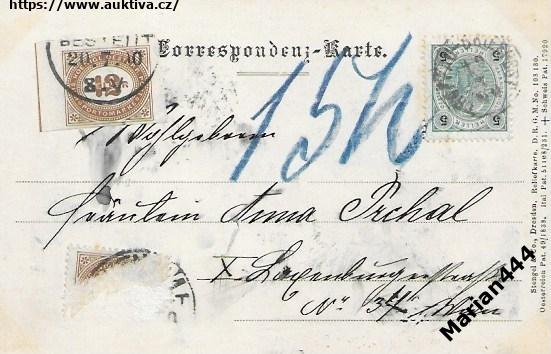 https://www.auktiva.cz/
BESTELLT
20 7 00
Correspondenz-Karte.
5 5
15h
Wohlgeboren
Fräulein Anna Prchal
X Laxenburgerstrasse
No 34 Wien
Stengel & Co., Dresden, Reliefkarte, D. R. G. M. No. 103180.
Oesterreich Pat. 49/1839. Ital Pat. 51168/231 + Schweiz Pat. 17920
Marian444